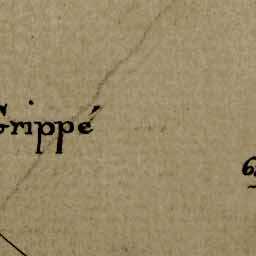 Grippé